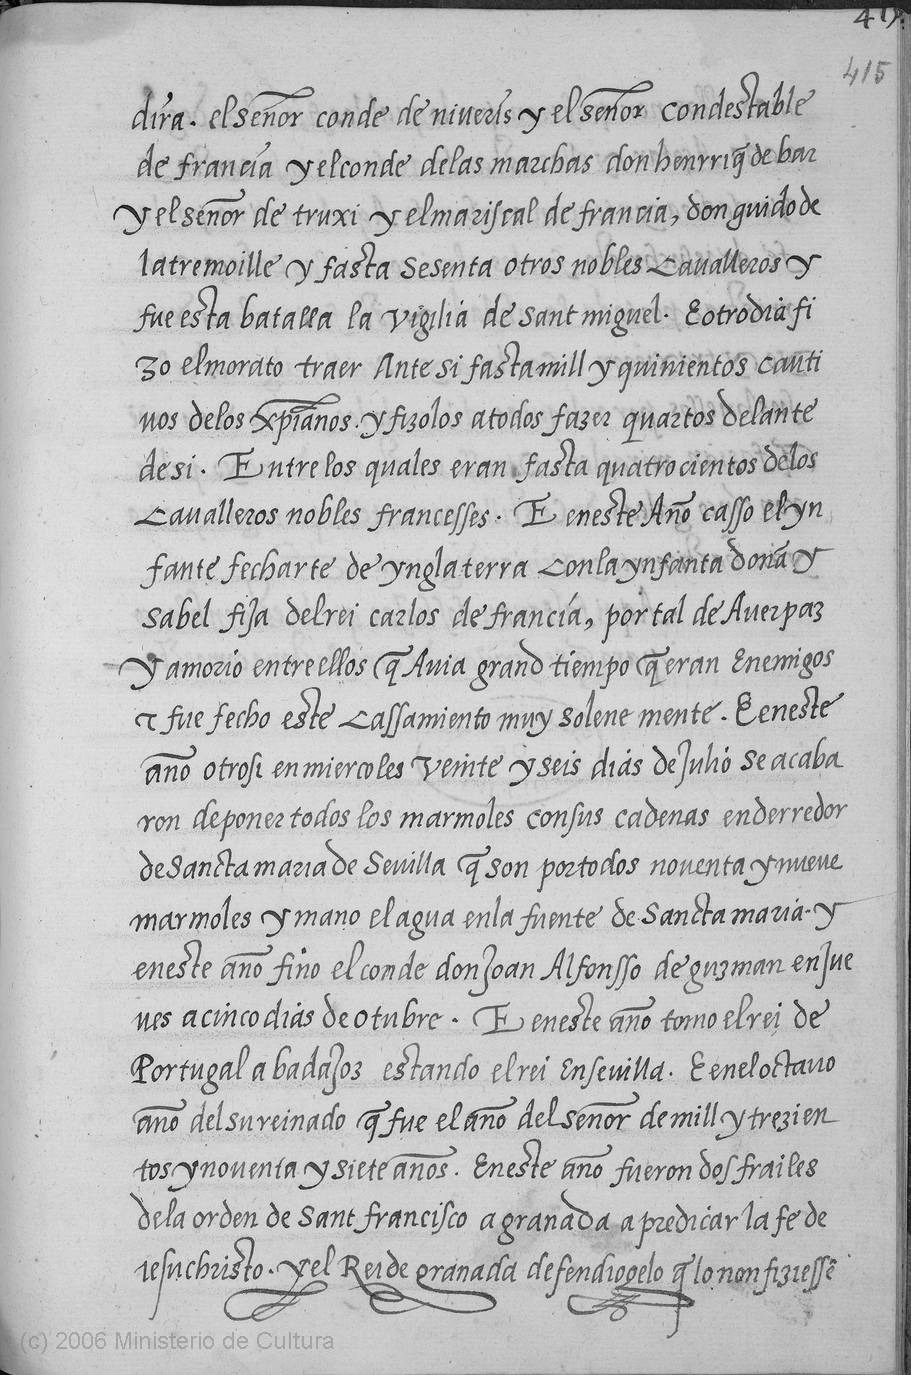 415
415
dira. el señor conde de niueris y el señor condestable
de francia y el conde delas marchas don henrriq̃ de bar
y el señor de truxi y el mariscal de francia, don guido de
latremoille y fasta sesenta otros nobles cavalleros y
fue esta batalla la vigilia de sant miguel. E otro dia fi
zo el morato traer Ante si fasta mill y quinientos cauti
uos delos xp̃ianos. y fizolos atodos fazer quartos delante
de si. Entre los quales eran fasta quatrocientos delos
cavalleros nobles francesses. E eneste Año casso el yn
fante fecharte de ynglaterra con la ynfanta doña y
sabel fija del rei carlos de francia, por tal de Auer paz
y amorio entre ellos q̃ Auia grand tiempo q̃ eran Enemigos
τ fue fecho este cassamiento muy solene mente. E eneste
año otrosi en miercoles veinte y seis dias de Julio se acaba
ron de poner todos los marmoles con sus cadenas enderredor
de Sancta maria de Sevilla q̃ son por todos noventa y nueve
marmoles y mano el agua en la fuente de Sancta maria. y
eneste año fino el conde don Joan Alfonsso de guzman en jue
ves a cinco dias de Otubre. E eneste año tomo el rei de
Portugal a badajoz estando el rei En sevilla. E en el octauo
año del su reinado q̃ fue el año del señor de mill y trezien
tos y noventa y siete años. Eneste año fueron dos frailes
dela orden de Sant francisco a granada a predicar la fe de
iesuchristo. y el Rei de granada defendiogelo q̃ lo non fiziessẽ
(c) 2006 Ministerio de Cultura